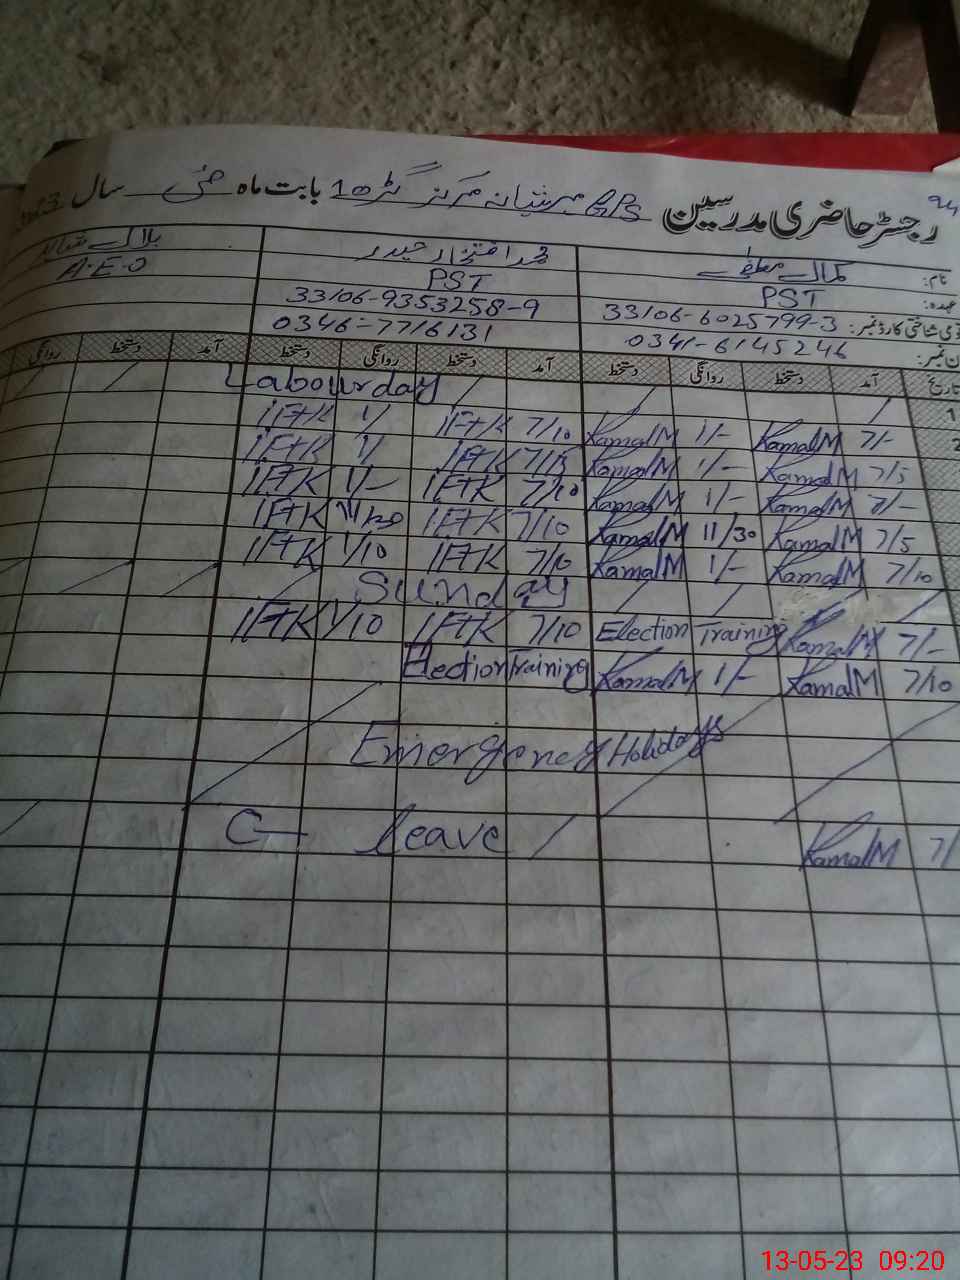 94
رجسٹر حاضری مدرسین GPS مرکز گڑھ 10 بابت ماہ مئی سال
نام: کمال مصطفے محمد افتخار حیدر بلال
عہدہ: PST PST A.E.O
شناختی کارڈ نمبر: 33106-6025799-3 33106-9353258-9
ن نمبر: 0341-6145246 0346-7716131
تاریخ آمد دستخط روانگی دستخط آمد دستخط روانگی دستخط آمد دستخط روانگی
1 Labourday
2 7/- KamalM 1/- KamalM 7/10 IFtK 1/ IFtK
7/5 KamalM 1/- KamalM 7/15 IFtK 1/ IFtK
7/- KamalM 1/- KamalM 7/10 IFtK 1/- IFtK
7/5 KamalM 11/30 KamalM 7/10 IFtK IFtK
7/10 KamalM 1/- KamalM 7/10 IFtK 1/10 IFtK
Sunday
7/- KamalM Election Training 7/10 IFtK 1/10 IFtK
7/10 KamalM 1/- KamalM Election Training
Emergency Holidays
7/ KamalM C- leave
13-05-23 09:20